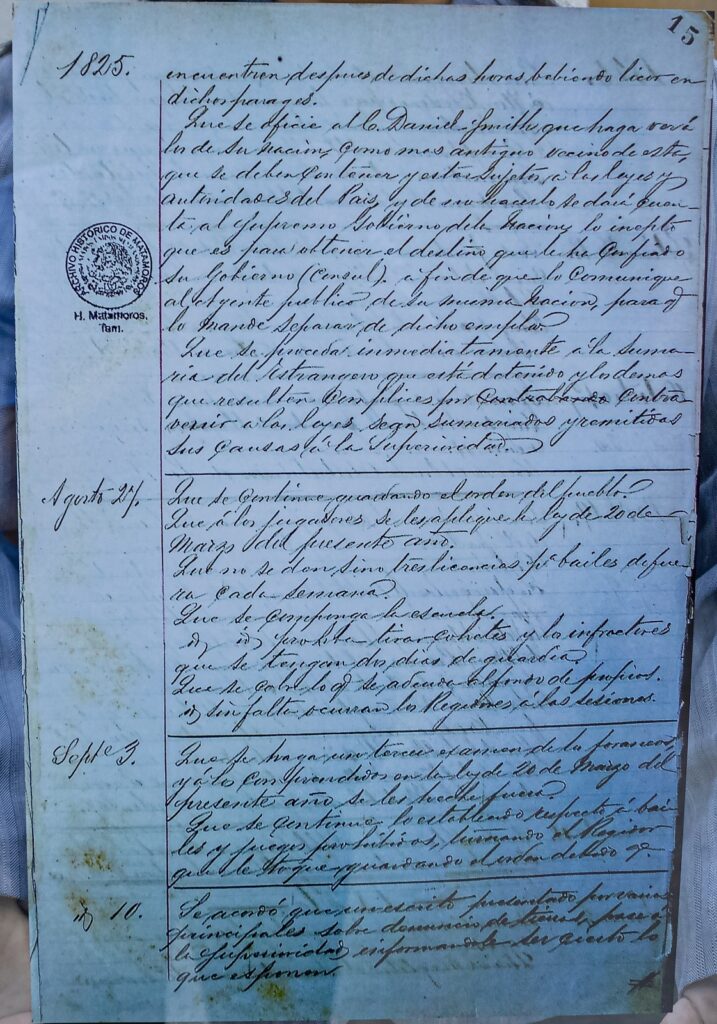 15
1825.
encuentren despues de dichas horas bebiendo licor en
dichos parages.
Que se oficie al C. Daniel Smith, que haga ver á
los de su nacion, como mas antiguo vecino de esta,
que se deben contener y estar sujetos, a las leyes y
autoridades del Pais, y de no hacerlo se dará cuen-
ta al Supremo Gobierno de la Nacion, lo inepto
que es para obtener el destino que le ha confiado
su Gobierno (Consul). a fin de que lo comunique
al Agente publico de su misma Nacion, para q
lo mande separar de dicho empleo.
ARCHIVO HISTÓRICO DE MATAMOROS
H. Matamoros,
Tam.
Que se proceda inmediatamente á la suma-
ria del estrangero que está detenido y los demas
que resulten complices por Contrabando contra-
venir a las leyes segn sumariados y remitidas
sus causas á la Superioridad
Agosto 27.
Que se continue guardando el orden del pueblo.
Que á los jugadores se les aplique la ley de 20 de
Marzo del presente año.
Que no se den sino tres licencias pa bailes de fue-
ra cada semana.
Que se componga la escuela.
id id prohiba tirar cohetes y los infractores
que se tengan dos dias de guardia
Que se cobre lo q se adeuda al fondo de propios.
id sin falta ocurran los Regidores á las sesiones.
Septe 3.
Que se haga un tercer examen de los foraneos,
y á los comprendidos en la ley de 20 de Marzo del
presente año se les heche fuera.
Que se continue lo establecido respecto á bai-
les y juegos prohibidos, turnando el Regidor
que le toque y guardando el orden debido
id 10.
Se acordó que un escrito presentado por varios
principales sobre denuncio de tierras, pase a
la Superioridad informando ser cierto lo
que esponen.